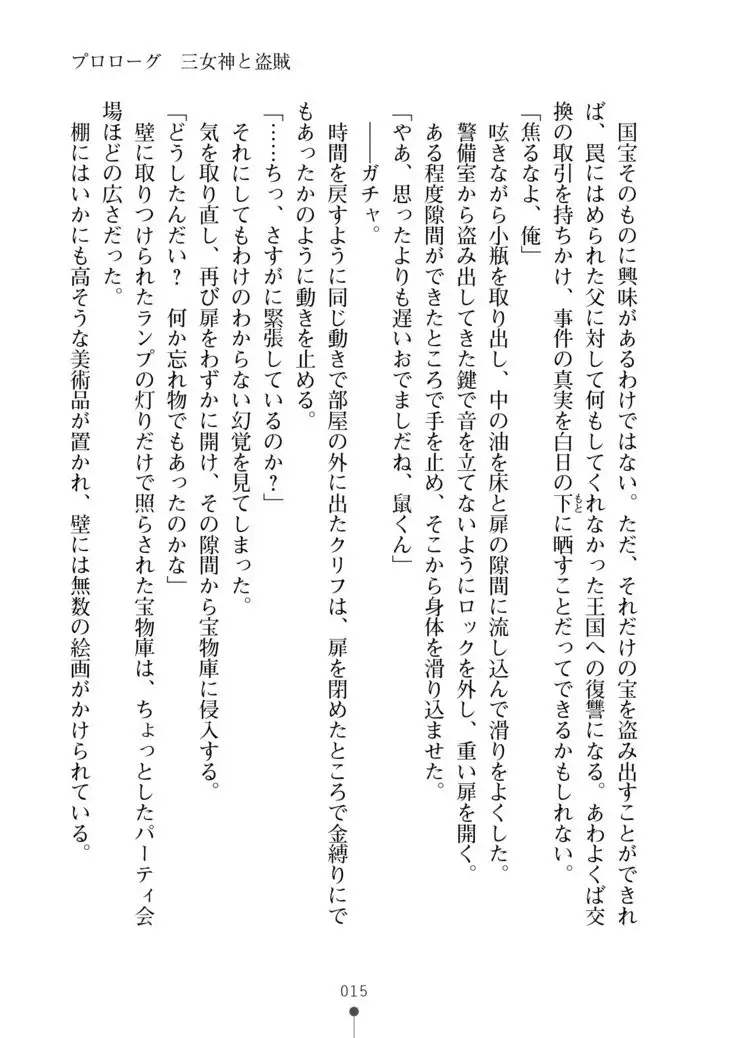 プロローグ　三女神と盗賊
　国宝そのものに興味があるわけではない。ただ、それだけの宝を盗み出すことができれ
ば、罠にはめられた父に対して何もしてくれなかった王国への復讐になる。あわよくば交
換の取引を持ちかけ、事件の真実を白日の下もとに晒すことだってできるかもしれない。
「焦るなよ、俺」
　呟きながら小瓶を取り出し、中の油を床と扉の隙間に流し込んで滑りをよくした。
　警備室から盗み出してきた鍵で音を立てないようにロックを外し、重い扉を開く。
　ある程度隙間ができたところで手を止め、そこから身体を滑り込ませた。
「やあ、思ったよりも遅いおでましだね、鼠くん」
　――ガチャ。
　時間を戻すように同じ動きで部屋の外に出たクリフは、扉を閉めたところで金縛りにで
もあったかのように動きを止める。
「……ちっ、さすがに緊張しているのか？」
　それにしてもわけのわからない幻覚を見てしまった。
　気を取り直し、再び扉をわずかに開け、その隙間から宝物庫に侵入する。
「どうしたんだい？　何か忘れ物でもあったのかな」
　壁に取りつけられたランプの灯りだけで照らされた宝物庫は、ちょっとしたパーティ会
場ほどの広さだった。
　棚にはいかにも高そうな美術品が置かれ、壁には無数の絵画がかけられている。
015